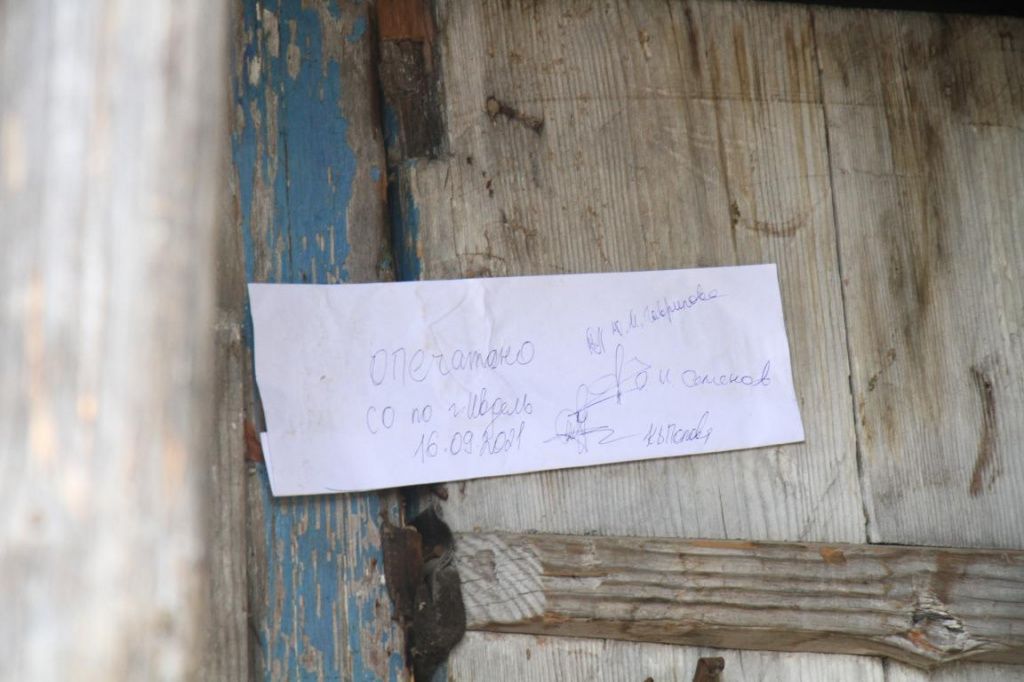 Опечатано
СО по г. Ивдель
16.09.2021
Ю.М. Гаврилова
О.И. Семенов
Попова